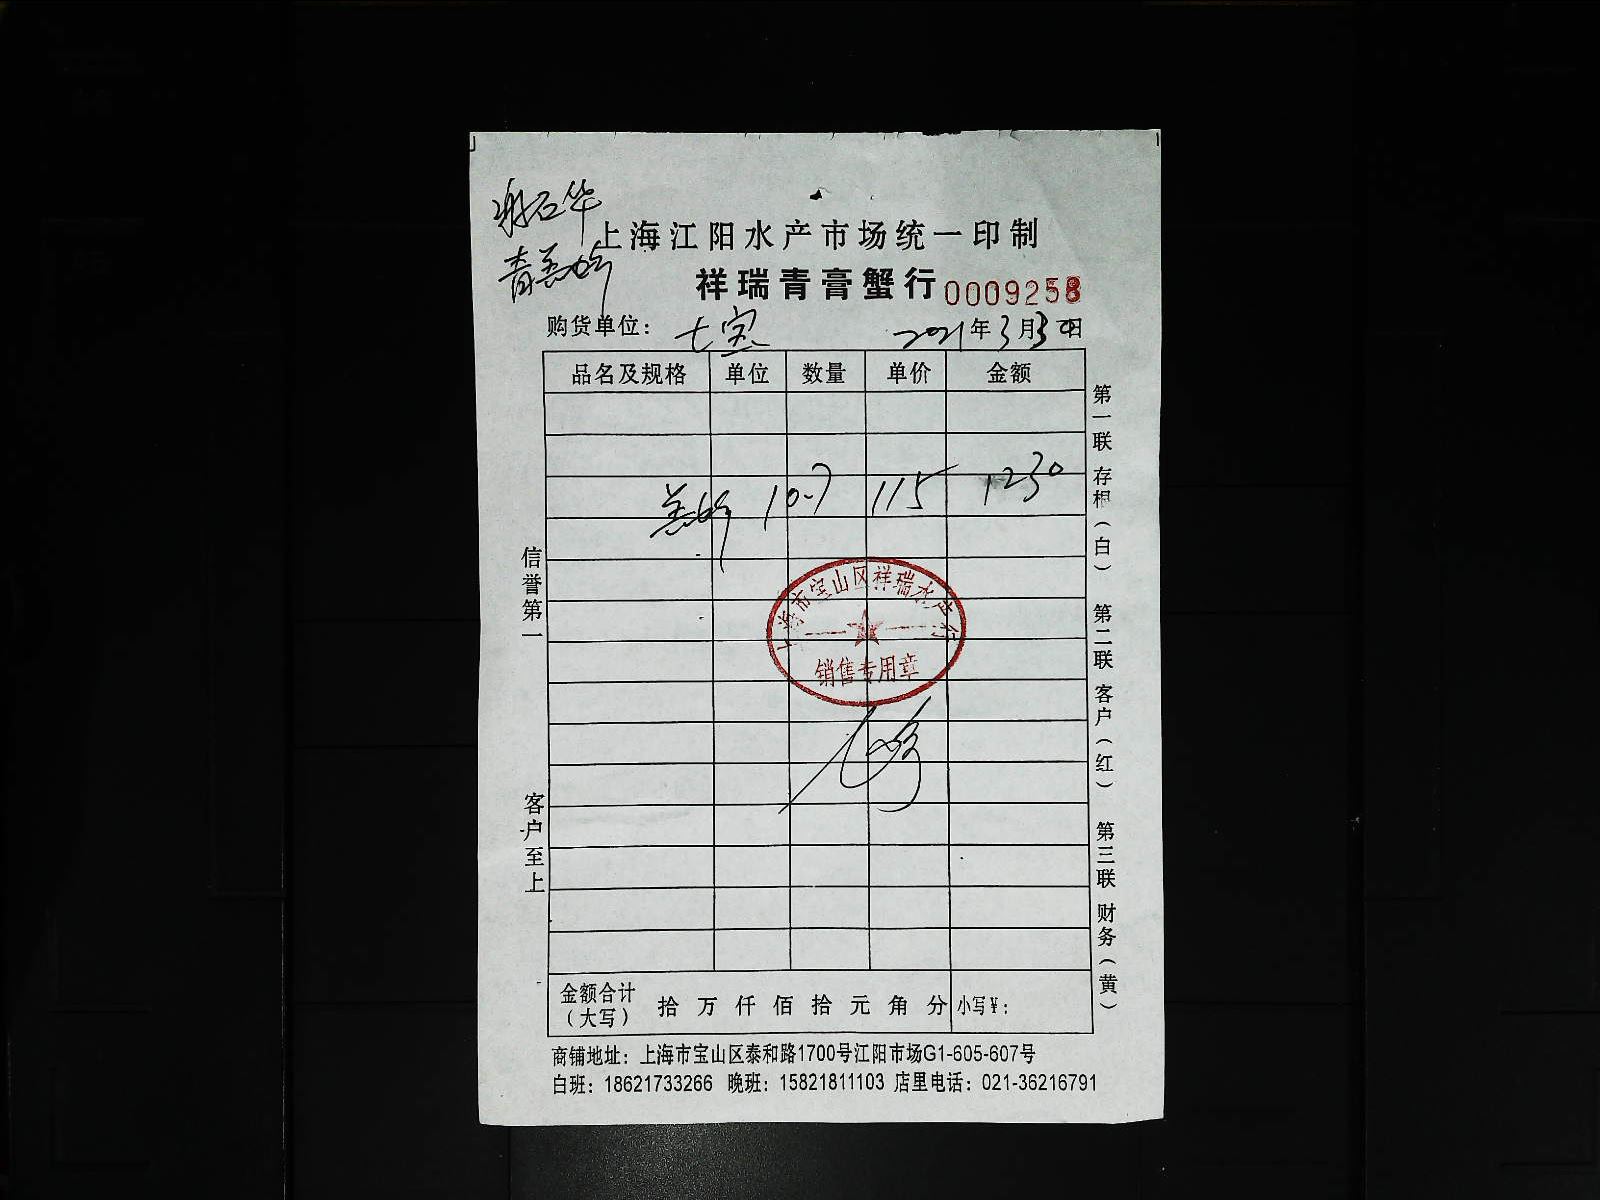 上海江阳水产市场统一印制
祥瑞青膏蟹行 0009258
购货单位： 七宝 2021年3月30日
品名及规格 单位 数量 单价 金额
10.7 115 1230
上海市宝山区祥瑞水产行
销售专用章
金额合计（大写） 拾 万 仟 佰 拾 元 角 分 小写￥：
商铺地址：上海市宝山区泰和路1700号江阳市场G1-605-607号
白班：18621733266 晚班：15821811103 店里电话：021-36216791
信誉第一 客户至上
第一联 存根（白） 第二联 客户（红） 第三联 财务（黄）